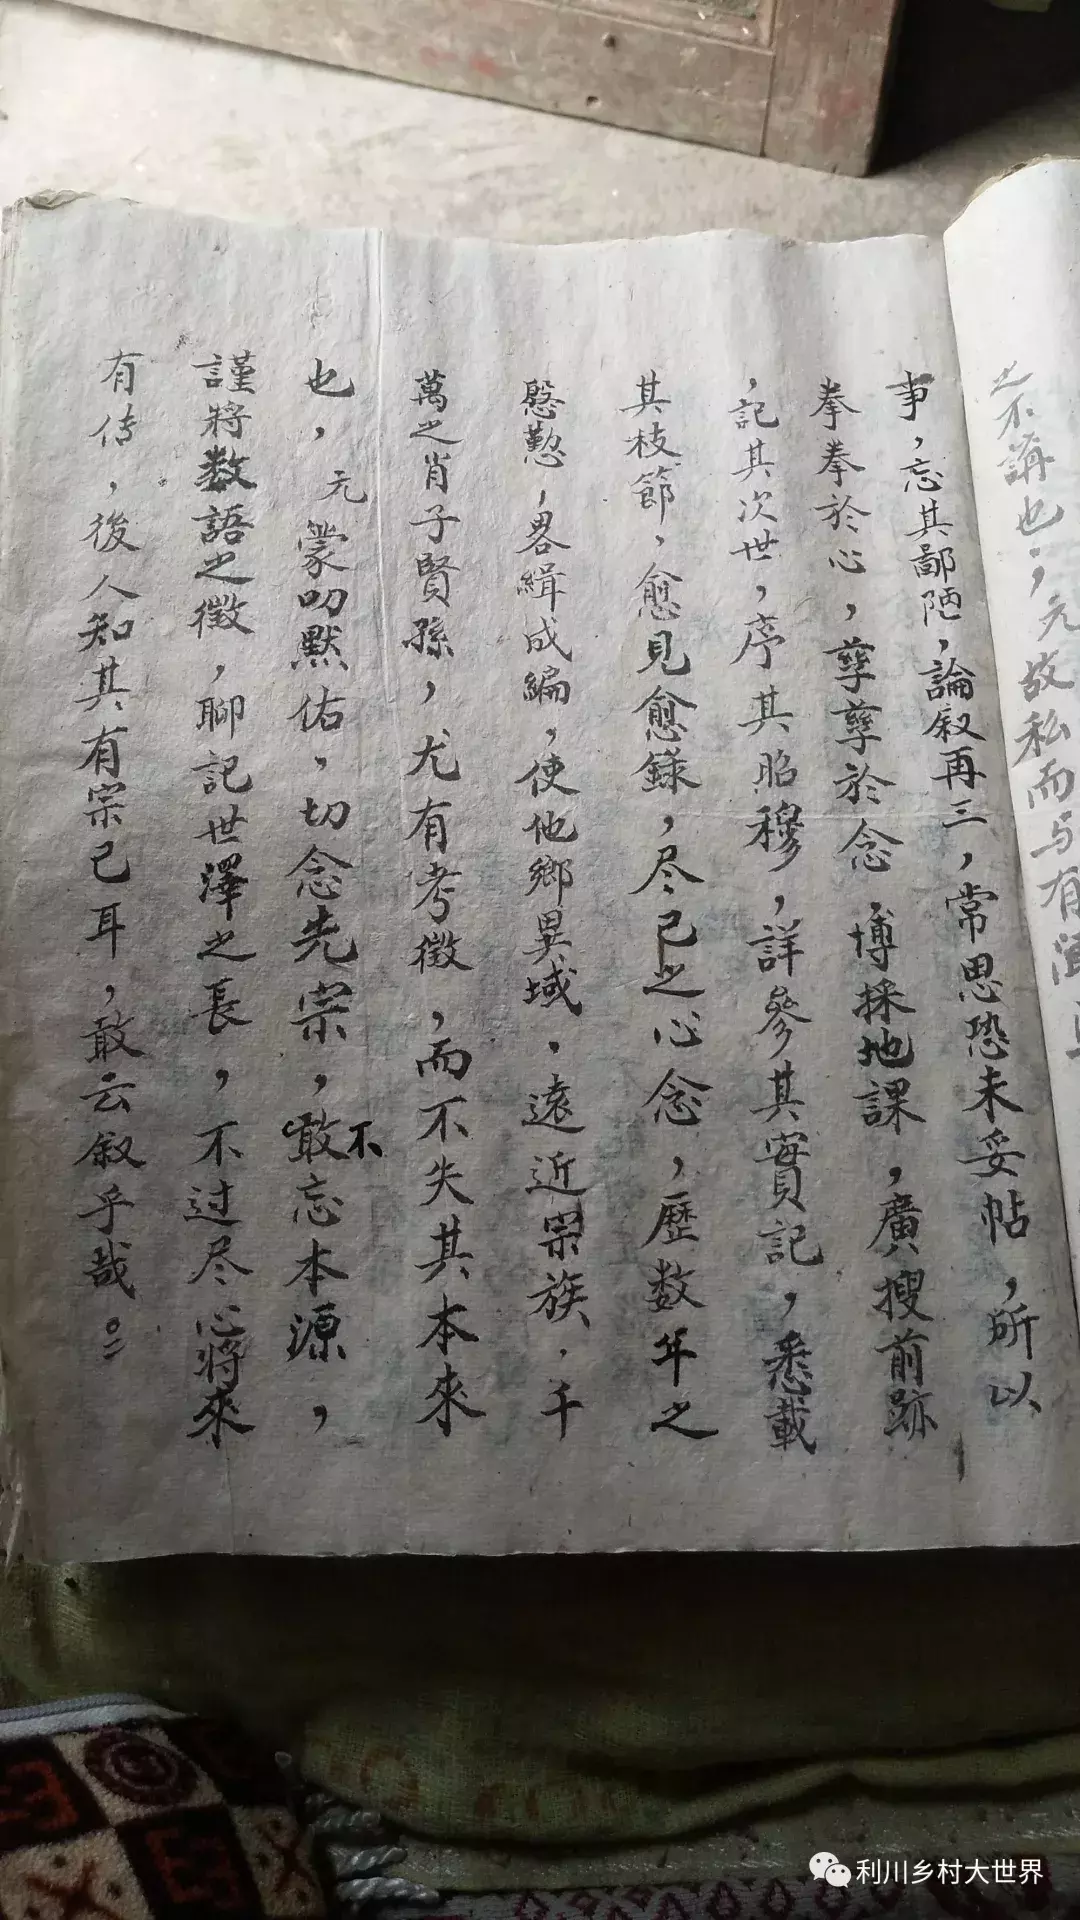 之不講也，元故私而与有
事，忘其鄙陋，論叙再三，常思恐未妥帖，所以
拳拳於心，孳孳於念，博採地課，廣搜前跡
，記其次世，序其昭穆，詳參其實記，悉載
其枝節，愈見愈錄，尽己之心念，歷数年之
慇懃，畧緝成編，使他鄉異域，遠近宗族，千
萬之肖子賢孫，尤有考徵，而不失其本來
也，元蒙叨默佑，切念先宗，不敢忘本源，
謹將数語之徵，聊記世澤之長，不过尽心將來
有传，後人知其有宗已耳，敢云叙乎哉。
利川乡村大世界